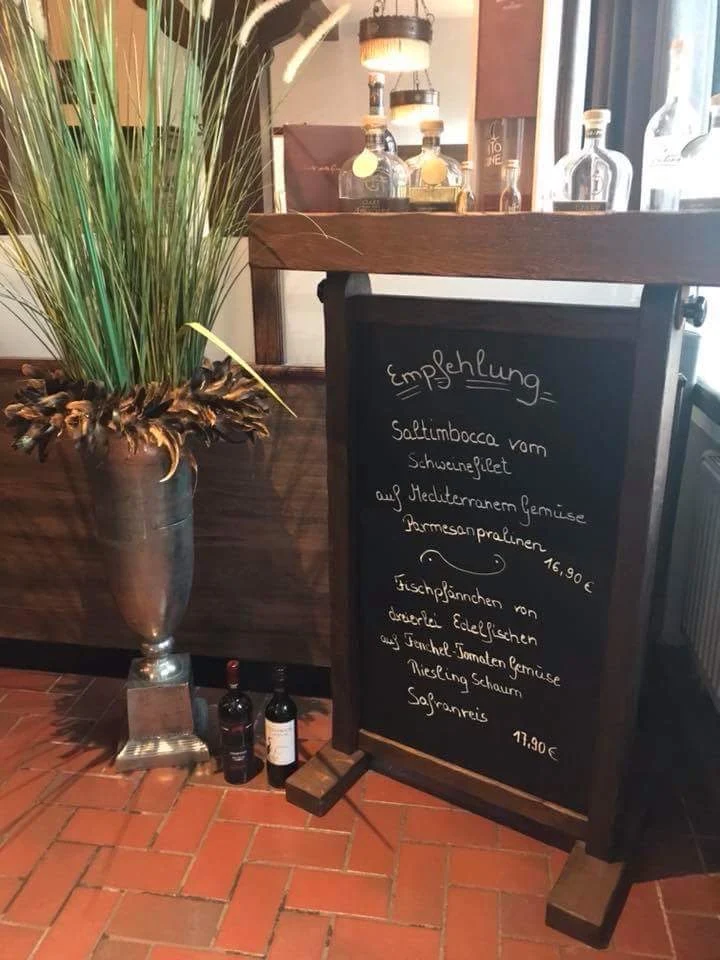 Empfehlung
Saltimbocca vom
Schweinefilet
auf Mediterranem Gemüse
Parmesanpralinen
16,90 €
Fischpfännchen von
dreierlei Edelfischen
auf Fenchel-Tomaten Gemüse
Riesling Schaum
Safranreis
17,90 €